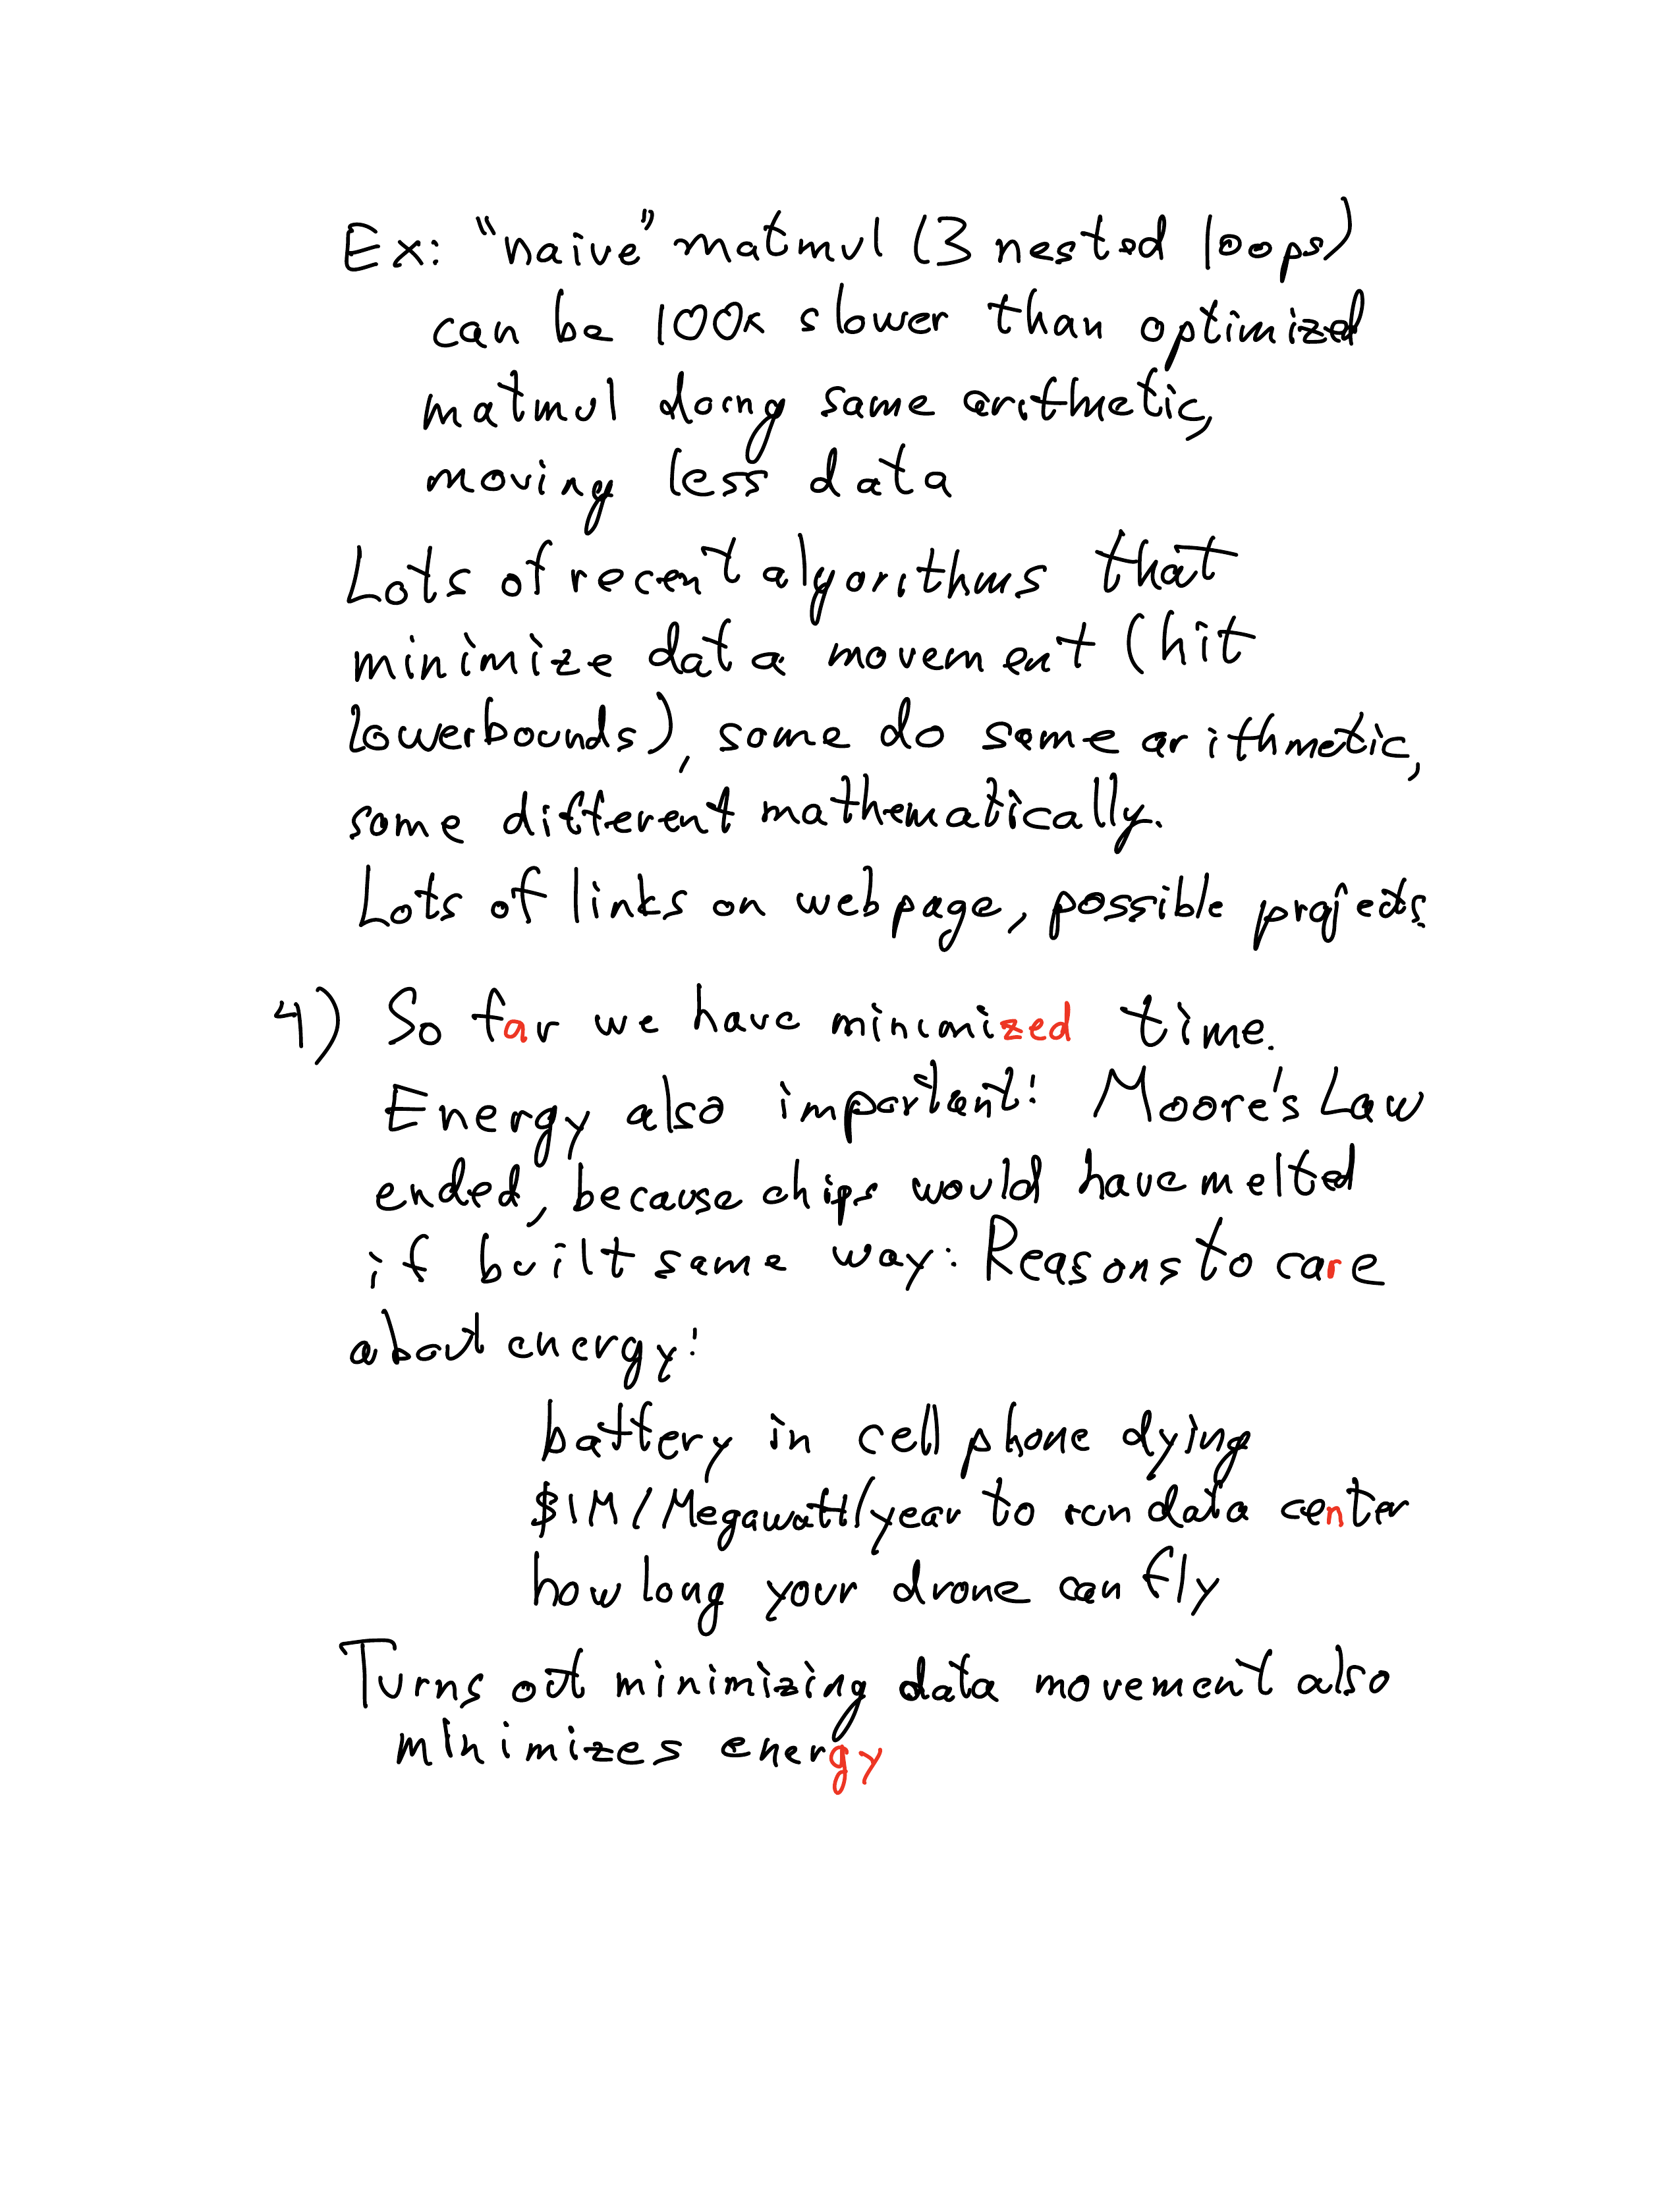 Ex: "naive" matmul (3 nested loops)
can be 100x slower than optimized
matmul doing same arithmetic,
moving less data
Lots of recent algorithms that
minimize data movement (hit
lowerbounds), some do same arithmetic,
some different mathematically.
Lots of links on webpage, possible projects
4) So far we have minimized time.
Energy also important: Moore's Law
ended, because chips would have melted
if built same way: Reasons to care
about energy:
battery in cell phone dying
$1M/Megawatt/year to run data center
how long your drone can fly
Turns out minimizing data movement also
minimizes energy